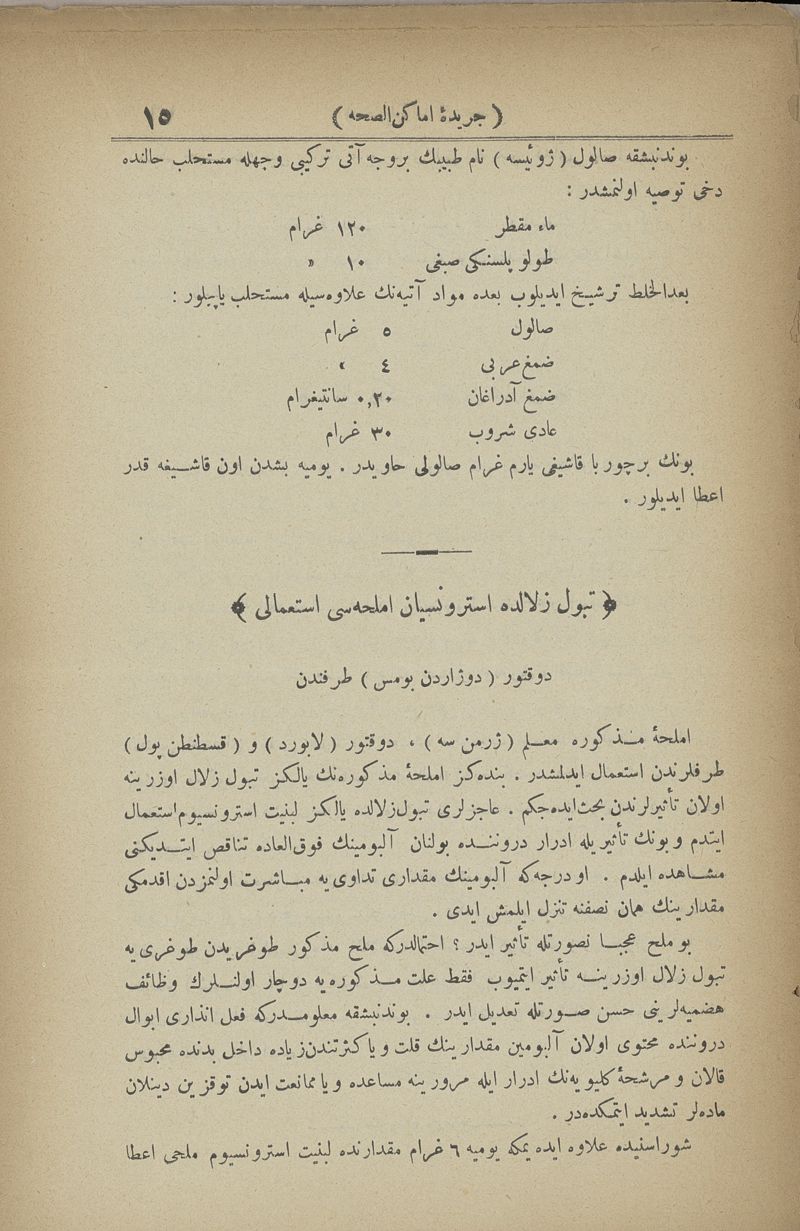 ( جریدهٔ اماكن‌الصحه ) ١٥
بوندنبشقه صالول ( ژوئیسه ) نام طبیبك بروجه آتی تركیبی وجهله مستحلب حالنده
دخی توصیه اولنمشدر :
ماء مقطر ١٢٠ غرام
طولو پلسنكی صبغی ١٠ »
بعدالخلط ترشیح ایدیلوب بعده مواد آتیه‌نك علاوه‌سیله مستحلب یاپیلور :
صالول ٥ غرام
ضمغ عربی ٤ »
ضمغ آدراغان ٠,٢٠ سانتیغرام
عادی شروب ٣٠ غرام
بونك برچوربا قاشیغی یارم غرام صالولی حاویدر . یومیه بشدن اون قاشیغه قدر
اعطا ایدیلور .
﴿ تبول زلالده استرونسیان املحه‌سی استعمالی ﴾
دوقتور ( دوژاردن بومس ) طرفندن
املحهٔ مذكوره معلم ( ژرمن سه ) ، دوقتور ( لابورد ) و ( قسطنطن پول )
طرفلرندن استعمال ایدلمشدر . بنده‌كز املحهٔ مذكوره‌نك یالكز تبول زلال اوزرینه
اولان تأثیرلرندن بحث‌ایده‌جكم . عاجزلری تبول‌زلالده یالكز لبنیت استرونسیوم‌استعمال
ایتدم وبونك تأثیریله ادرار دروننده بولنان آلبومینك فوق‌العاده تناقص ایتدیكنی
مشاهده ایلدم . اودرجه‌كه آلبومینك مقداری تداوی‌یه مباشرت اولنمزدن اقدمكی
مقدارینك همان نصفنه تنزل ایلمش ایدی .
بوملح عجبا نصورتله تأثیر ایدر ؟ احتمالدركه ملح مذكور طوغریدن طوغری‌یه
تبول زلال اوزرینه تأثیر ایتمیوب فقط علت مذكوره‌یه دوچار اولنلرك وظائف
هضمیه‌لرینی حسن صورتله تعدیل ایدر . بوندنبشقه معلومدركه فعل انذاری ابوال
دروننده محتوی اولان آلبومین مقدارینك قلت ویاكثرتندن‌زیاده داخل بدنده محبوس
قالان و مرشحهٔ كلیویه‌نك ادرار ایله مرورینه مساعده ویاممانعت ایدن توقزین دینلان
ماده‌لر تشدید ایتمكده‌در .
شوراسنیده علاوه ایده‌یم‌كه یومیه ٦ غرام مقدارنده لبنیت استرونسیوم ملحی اعطا